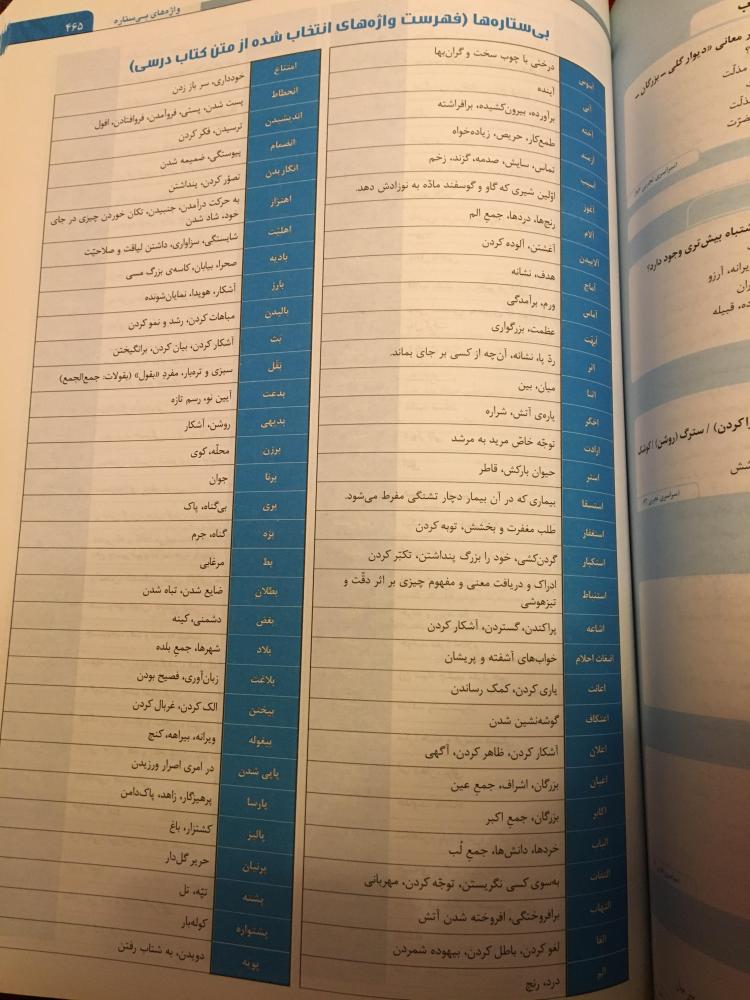 واژه‌های بی‌ستاره
۴۶۵
بی‌ستاره‌ها (فهرست واژه‌های انتخاب شده از متن کتاب درسی)
آبنوس درختی با چوب سخت و گران‌بها
آتی آینده
آخته برآورده، بیرون‌کشیده، برافراشته
آزمند طمع‌کار، حریص، زیاده‌خواه
آسیب تماس، سایش، صدمه، گزند، زخم
آغوز اوّلین شیری که گاو و گوسفند مادّه به نوزادش دهد.
آلام رنج‌ها، دردها، جمع الم
آلاییدن آغشتن، آلوده کردن
آماج هدف، نشانه
آماس ورم، برآمدگی
اُبهّت عظمت، بزرگواری
اثر ردّ پا، نشانه، آن‌چه از کسی بر جای بماند.
اثنا میان، بین
اخگر پاره‌ی آتش، شراره
ارادت توجّه خاصّ مرید به مرشد
استر حیوان بارکش، قاطر
استسقا بیماری که در آن بیمار دچار تشنگی مفرط می‌شود.
استغفار طلب مغفرت و بخشش، توبه کردن
استکبار گردن‌کشی، خود را بزرگ پنداشتن، تکبّر کردن
استنباط ادراک و دریافت معنی و مفهوم چیزی بر اثر دقّت و
تیزهوشی
اشاعه پراکندن، گستردن، آشکار کردن
اضغاث احلام خواب‌های آشفته و پریشان
اعانت یاری کردن، کمک رساندن
اعتکاف گوشه‌نشین شدن
اعلان آشکار کردن، ظاهر کردن، آگهی
اعیان بزرگان، اشراف، جمع عین
اکابر بزرگان، جمع اکبر
الباب خردها، دانش‌ها، جمع لُب
التفات به‌سوی کسی نگریستن، توجّه کردن، مهربانی
التهاب برافروختگی، افروخته شدن آتش
الغا لغو کردن، باطل کردن، بیهوده شمردن
الم درد، رنج
امتناع خودداری، سر باز زدن
انحطاط پست شدن، پستی، فروآمدن، فروافتادن، افول
اندیشیدن ترسیدن، فکر کردن
انضمام پیوستگی، ضمیمه شدن
انگاریدن تصوّر کردن، پنداشتن
اهتزاز به حرکت درآمدن، جنبیدن، تکان خوردن چیزی در جای
خود، شاد شدن
اهلیّت شایستگی، سزاواری، داشتن لیاقت و صلاحیّت
بادیه صحرا، بیابان، کاسه‌ی بزرگ مسی
بارز آشکار، هویدا، نمایان‌شونده
بالیدن مباهات کردن، رشد و نمو کردن
بَث آشکار کردن، بیان کردن، برانگیختن
بَقْل سبزی و تره‌بار، مفردِ «بقول» (بقولات: جمع‌الجمع)
بدعت آیین نو، رسم تازه
بدیهی روشن، آشکار
برزن محلّه، کوی
برنا جوان
بری بی‌گناه، پاک
بزه گناه، جرم
بط مرغابی
بطلان ضایع شدن، تباه شدن
بغض دشمنی، کینه
بلاد شهرها، جمع بلده
بلاغت زبان‌آوری، فصیح بودن
بیختن الک کردن، غربال کردن
بیغوله ویرانه، بیراهه، کنج
پاپی شدن در امری اصرار ورزیدن
پارسا پرهیزگار، زاهد، پاک‌دامن
پالیز کشتزار، باغ
پرنیان حریر گل‌دار
پشته تپّه، تل
پشتواره کوله‌بار
پویه دویدن، به شتاب رفتن
ر معانی «دیوار گلی – بزرگان –
مذلّت
شتباه بیش‌تری وجود دارد؟
یرانه، آرزو
ران
ده، قبیله
راکردن) / سترگ (روشن) / کوشک
شش